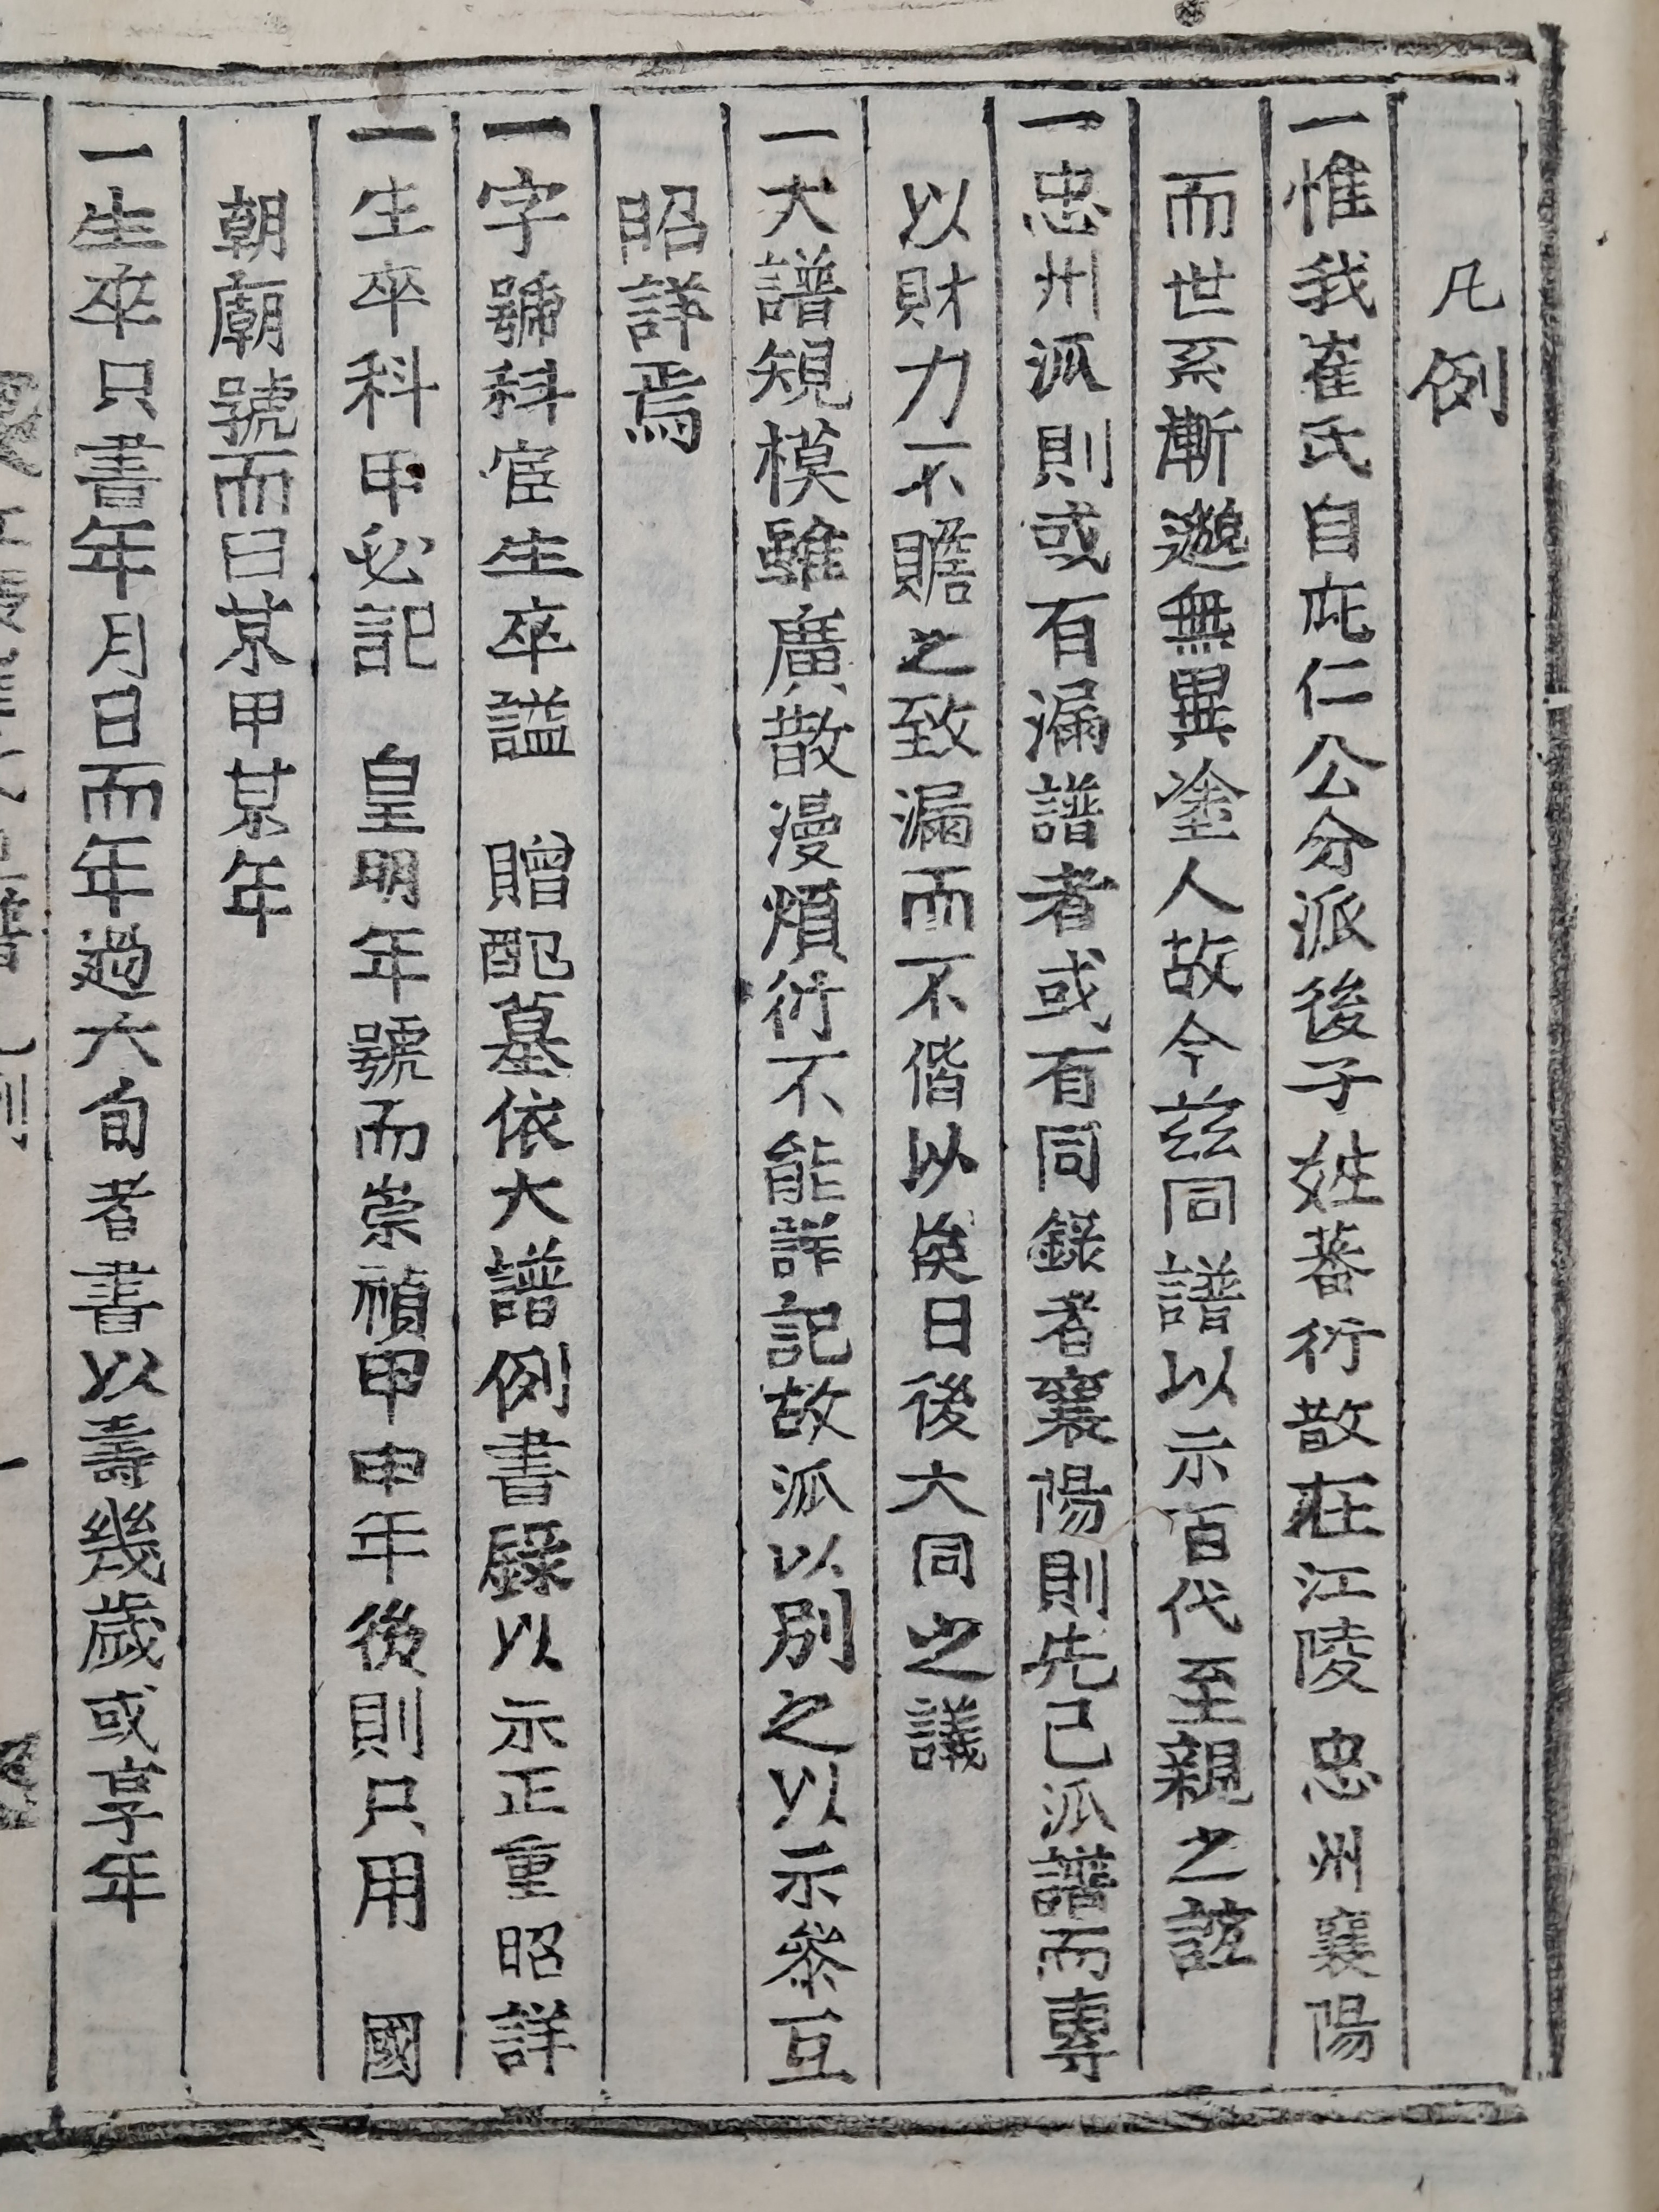 凡例
一惟我崔氏自庇仁公分派後子姓蕃衍散在江陵忠州襄陽
而世系漸邈無異塗人故今玆同譜以示百代至親之誼
一忠州派則或有漏譜者或有同錄者襄陽則先已派譜而專
以財力不贍之致漏而不偕以俟日後大同之議
一大譜規模雖廣散漫煩衍不能詳記故派以別之以示叅互
昭詳焉
一字號科宦生卒謚 贈配墓依大譜例書錄以示正重昭詳
一生卒科甲必記 皇明年號而崇禎甲申年後則只用 國
朝廟號而曰某甲某年
一生卒只書年月日而年過六旬者書以壽幾歲或享年